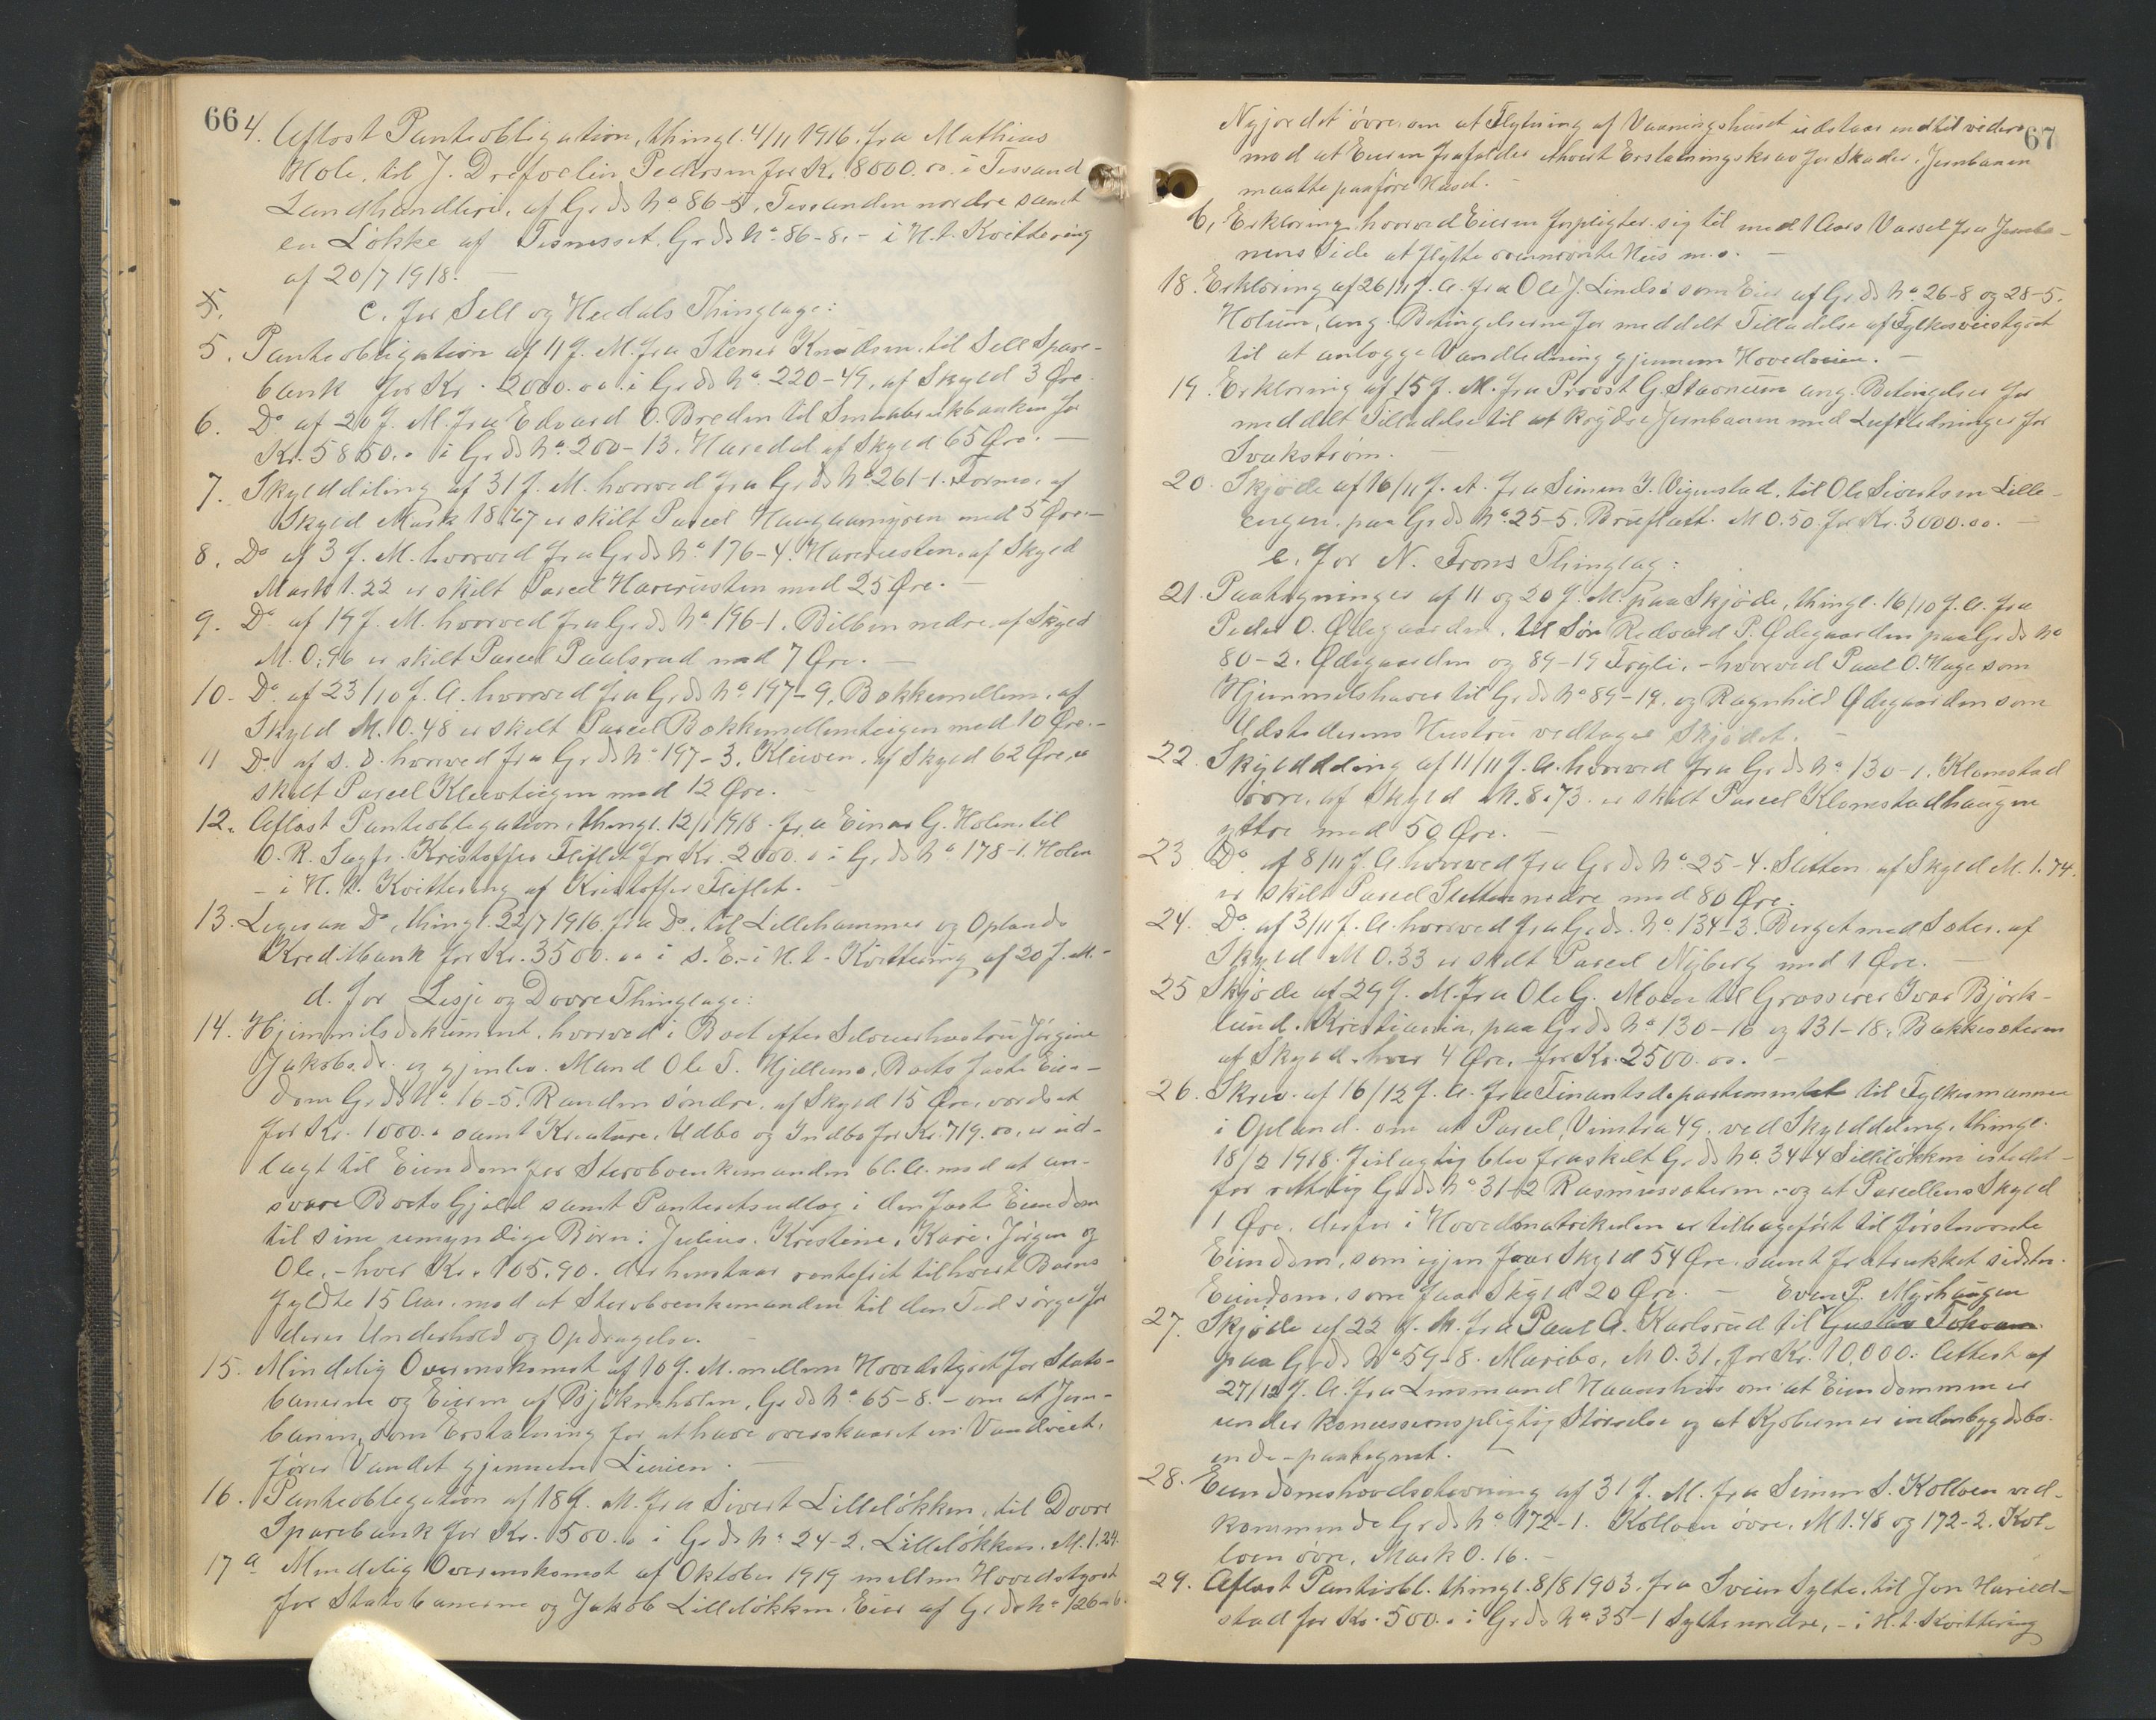 66
4. Aflost Panteobligation, thingl. 4/11 1916. fra Mathias
Hole, til J. Pedersen for Kr. 8000.00 i Tessand
Landhandleri, af G. ds No 86-5, Tessanden nordre samt
en Løkke af Tesnesset, G. ds No 86-8. - i H. t. Kvittering
af 20/7 1918. -
5. c. for Sell og Heidals Thinglag:
5. Panteobligation af 11 f. M. fra Stener Knudsen, til Sell Spare-
bank for Kr. 2000.00 i G. ds No 220-49, af Skyld 3 Øre.
6. Do af 20 f. M. fra Edvard O. Breden til Smaabrukbanken for
Kr. 5850.- i G. ds No 200-13. af Skyld 65 Øre. -
7. Skylddeling af 31 f. M. hvorved fra G. ds No 261-1. Formo, af
Skyld Mark 18.67 er skilt Parcel Haagaamyren med 5 Øre. -
8. Do af 3 f. M. hvorved fra G. ds No 176-4. af Skyld
Mark 1.22 er skilt Parcel med 25 Øre. -
9. Do af 19 f. M. hvorved fra G. ds No 196-1. Bilben nedre, af Skyld
M. 0.96 er skilt Parcel Paulsrud med 7 Øre. -
10. Do af 23/10 f. A. hvorved fra G. ds No 197-9, Bekkemellem, af
Skyld M. 0.48 er skilt Parcel Bekkemellemteigen med 10 Øre. -
11 Do af s. D. hvorved fra G. ds No 197-3, Kleiven, af Skyld 62 Øre, er
skilt Parcel Kleivteigen med 12 Øre. -
12. Aflost Panteobligation, thingl. 12/1 1918. fra Einar G. Holen, til
O. R. Sagfr. Kristoffer Fliflet for Kr. 2000.- i G. ds No 178-1. Holen
- i H. t. Kvittering af Kristoffer Fliflet. -
13. Ligesaa Do, thingl. 22/7 1916. fra Do, til Lillehammer og Oplands
Kreditbank for Kr. 3500.00 i s. E. - i H. t. Kvittering af 20 f. M. -
d. for Lesje og Dovre Thinglag:
14. Hjemmelsdokument, hvorved i Boet efter Selveierhustru Jørgine
Jakobsdr. og gjenlev. Mand Ole T. Hjellemo, Boets faste Eien-
dom G. ds No 16-5, Randen søndre, af Skyld 15 Øre, vurderet
for Kr. 1000.- samt Kreature, Udbo og Indbo for Kr. 719.00, er ud-
lagt til Eiendom for Sterboenkemanden bl. A. mod at an-
svare Boets Gjæld samt Panteretsudlæg i den faste Eiendom
til sine umyndige Børn: Julius, Kristine, Kari, Jørgen og
Ole, - hver Kr. 105.90. der henstaar rentefrit til hvert Barns
fyldte 15 Aar, mod at Sterboenkemanden til den Tid sørger for
deres Underhold og Opdragelse. -
15. Mindelig Overenskomst af 10 f. M. mellem Hovedstyret for Stats-
banerne og Eieren af Bjøknholen, G. ds No 65-8. - om at Jern-
banen, som Erstatning for at have overskaaret en Vandveit,
fører Vandet gjennem Linien. -
16. Panteobligation af 18 f. M. fra Sivert Lilleløkken, til Dovre
Sparebank for Kr. 500.00 i G. ds No 24-2, Lilleløkken. M. 1.24.
17 a Mindelig Overenskomst af Oktober 1919 mellem Hovedstyret
for Statsbanerne og Jakob Lilleløkken, Eier af G. ds No 126-6.
67
Nyjordet øvre, om at Flytning af Vaaningshuset udstaar indtil videre
mod at Eieren frafalder ethvert Erstatningskrav for Skader, Jernbanen
maatte paaføre Huset. -
b, Erklæring hvorved Eieren forpligter sig til med 1 Aars Varsel fra Jernba-
nens Side at flytte ovennævnte Hus m. v. -
18. Erklæring af 26/11 f. A. fra Ole J. Lindsø som Eier af G. ds No 26-8 og 28-5.
Holum, ang. Betingelserne for meddelt Tilladelse af Fylkesveistyret
til at anlægge Vandledning gjennem Hovedveien. -
19. Erklæring af 15 f. M. fra Provst G. Stavnem ang. Betingelser for
meddelt Tilladelse til at krydse Jernbanen med Luftledninger for
Svakstrøm. -
20. Skjøde af 16/11 f. A. fra Simen J. Vigenstad, til Ole Sivertsen Lille-
engen, paa G. ds No 25-5. Brueflatt. M 0.50 for Kr. 3000.00. -
e. for N. Frons Thinglag:
21. Paategninger af 11 og 20 f. M. paa Skjøde, thingl. 16/10 f. A. fra
Peder O. Ødegaarden, til Søn Redvald P. Ødegaarden paa G. ds No
80-2. Ødegaarden og 89-19 Frygli, - hvorved Paul O. Hage som
Hjemmelshaver til G. ds No 89-19, og Ragnhild Ødegaarden som
Udstederens Hustru vedtager Skjødet. -
22. Skylddeling af 11/11 f. A. hvorved fra G. ds No 130-1. Klomstad
øvre, af Skyld M. 8.73. er skilt Parcel Klomstadhaugen
yttre med 50 Øre. -
23 Do af 8/11 f. A. hvorved fra G. ds No 25-4. Sletten, af Skyld M. 1.74.
er skilt Parcel Sletten nedre med 80 Øre.
24. Do af 3/11 f. A. hvorved fra G. ds No 134-3. Berget med Sæter, af
Skyld M 0.33 er skilt Parcel Nyberg med 1 Øre. -
25 Skjøde af 29 f. M. fra Ole G. Moen til Grosserer Ivar Bjørk-
lund, Kristiania, paa G. ds No 130-16 og 131-18, Bakkesæteren
af Skyld hver 4 Øre, for Kr. 2500.00. -
26. Skriv. af 16/12 f. A. fra Finantsdepartementet til Fylkesmannen
i Opland. om at Parcel, Vinstra 49, ved Skylddeling, thingl.
18/2 1918. feilagtig blev fraskilt G. ds No 34-4 Lilleløkken istedet-
for rettelig G. ds No 31-2 Rasmussæteren, - og at Parcellens Skyld
1 Øre, derfor i Hovedmatrikulen er tilbageført til førstnævnte
Eiendom, som igjen faar Skyld 54 Øre, samt fratrukket sidstn.
Eiendom, som faar Skyld 20 Øre. - Even P. Myrhaugen
27. Skjøde af 22 f. M. fra Paul A. Karlsrud til Gustav
paa G. ds No 59-8. Maribo, M 0.31, for Kr. 10,000. Attest af
27/12 f. A. fra Lensmand om at Eiendommen er
under koncessionspligtig Størrelse og at Kjøberen er indenbygdsbo-
ende - paategnet. -
28. Eiendomshovedstevning af 31 f. M. fra Simen S. Kolloen ved-
kommende G. ds No 172-1. Kolloen øvre, M 1.48 og 172-2. Kol-
loen øvre, Mark 0.16. -
29. Aflost Panteobl. thingl. 8/8 1903. fra Svein Sylte, til Jon Harild-
stad for Kr. 500.- i G. ds No 35-1 Sylte nordre, - i H. t. Kvittering